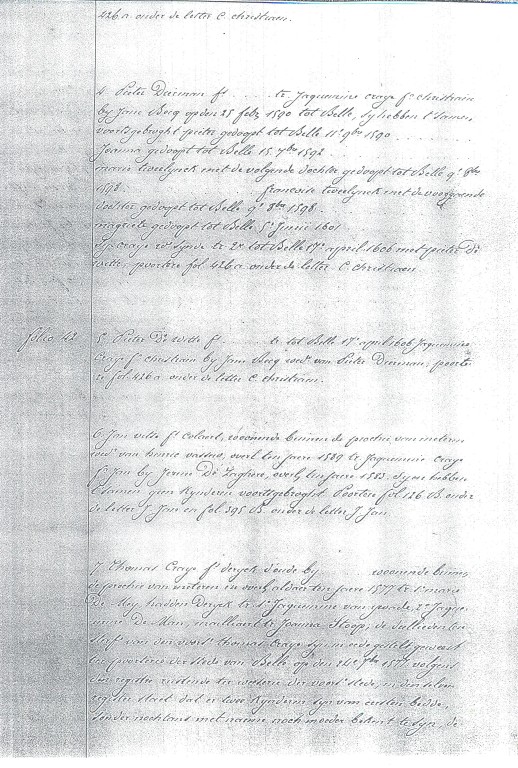 426a onder de letter C. christiaen.
4. Pieter Deeman fs tr. Jaquemine Craye fa christiaen
by Jane Becq op den 25 feb. 1590 tot Belle, sy hebben t'samen
voortgebroght pieter gedoopt tot Belle 11e 9bre 1590
Joanna gedoopt tot Belle 15 7bre 1592
marie tweelynck met de volgende dochter gedoopt tot Belle 9e 8bre
1598. francoise tweelynck met de voorgaende
dochter gedoopt tot Belle 9e 8bre 1598.
magriete gedoopt tot Belle 5e Junii 1601
J. craye tr. 2e tot Belle 17e april 1606 met pieter De
witte, poorters fol. 426a onder de letter C. christiaen
folio 42
5. Pieter De witte fs tr. tot Belle 17e april 1606 Jaquemine
Craye fa christiaen by Jane Becq wede. van Pieter Deeman: poorte
rs fol. 426a onder de letter C. christiaen.
6. Jan witte fs Colaert, woonende binnen de prochie van meteren
wed. van overl. in jaere 1589 tr. Jaquemine Craye
fa Jan by Jenne De overl. in jaere 1583. dyen hebben
t'samen geen kynderen voortsgebroght. Poorters fol. 126 B. onder
de letter J. Jan en fol. 395 B. onder de letter J. Jan.
7. Thomas Craye fs deryck d'oude by woonende binnen
de prochie van meteren en overl. aldaer in jaere 1577 tr. 1e marie
De Mey, hadden Deryck tr. 1e Jaquemine van 2e Jaque
mine De Man, tr. Joanna Stoop; de
van den voors. thomas Craye syn geweest
ter poorterie der stede van Belle op den 24e 7bre 1577 volgens
den register ter der voors. stede, in den selven
register staet dat er twee kynderen syn van eersten bedde,
sonder nochtans met naeme noch moeder bekent te syn, de